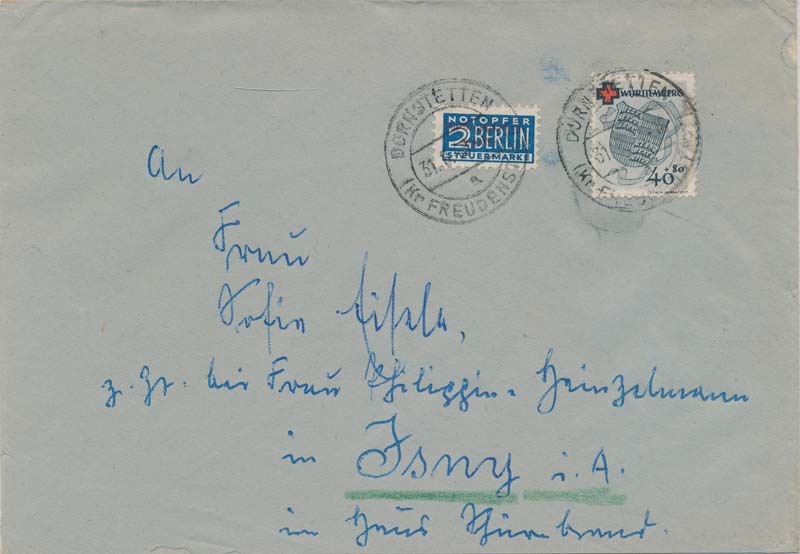 DORNSTETTEN
31.
a
(Kr. FREUDENS
NOTOPFER
2 BERLIN
STEUERMARKE
DORNSTETTEN
31.
(Kr. F
WÜRTTEMBERG
40 + 80
An
Frau
Sofie Eisele,
z. Zt. bei Frau Philippine Heinzelmann
in Isny i. A.
im Haus